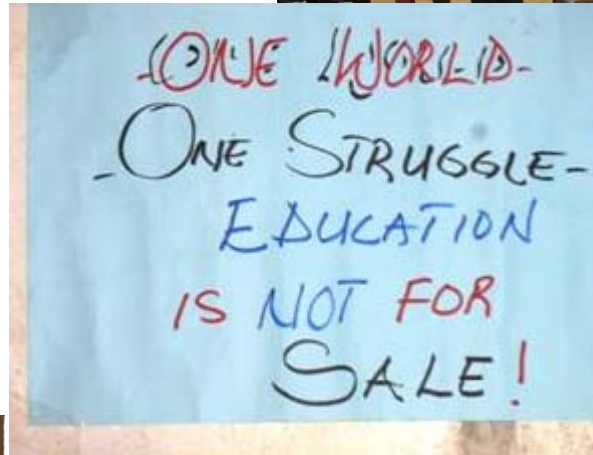 -ONE WORLD-
-ONE STRUGGLE-
EDUCATION
IS NOT FOR
SALE!